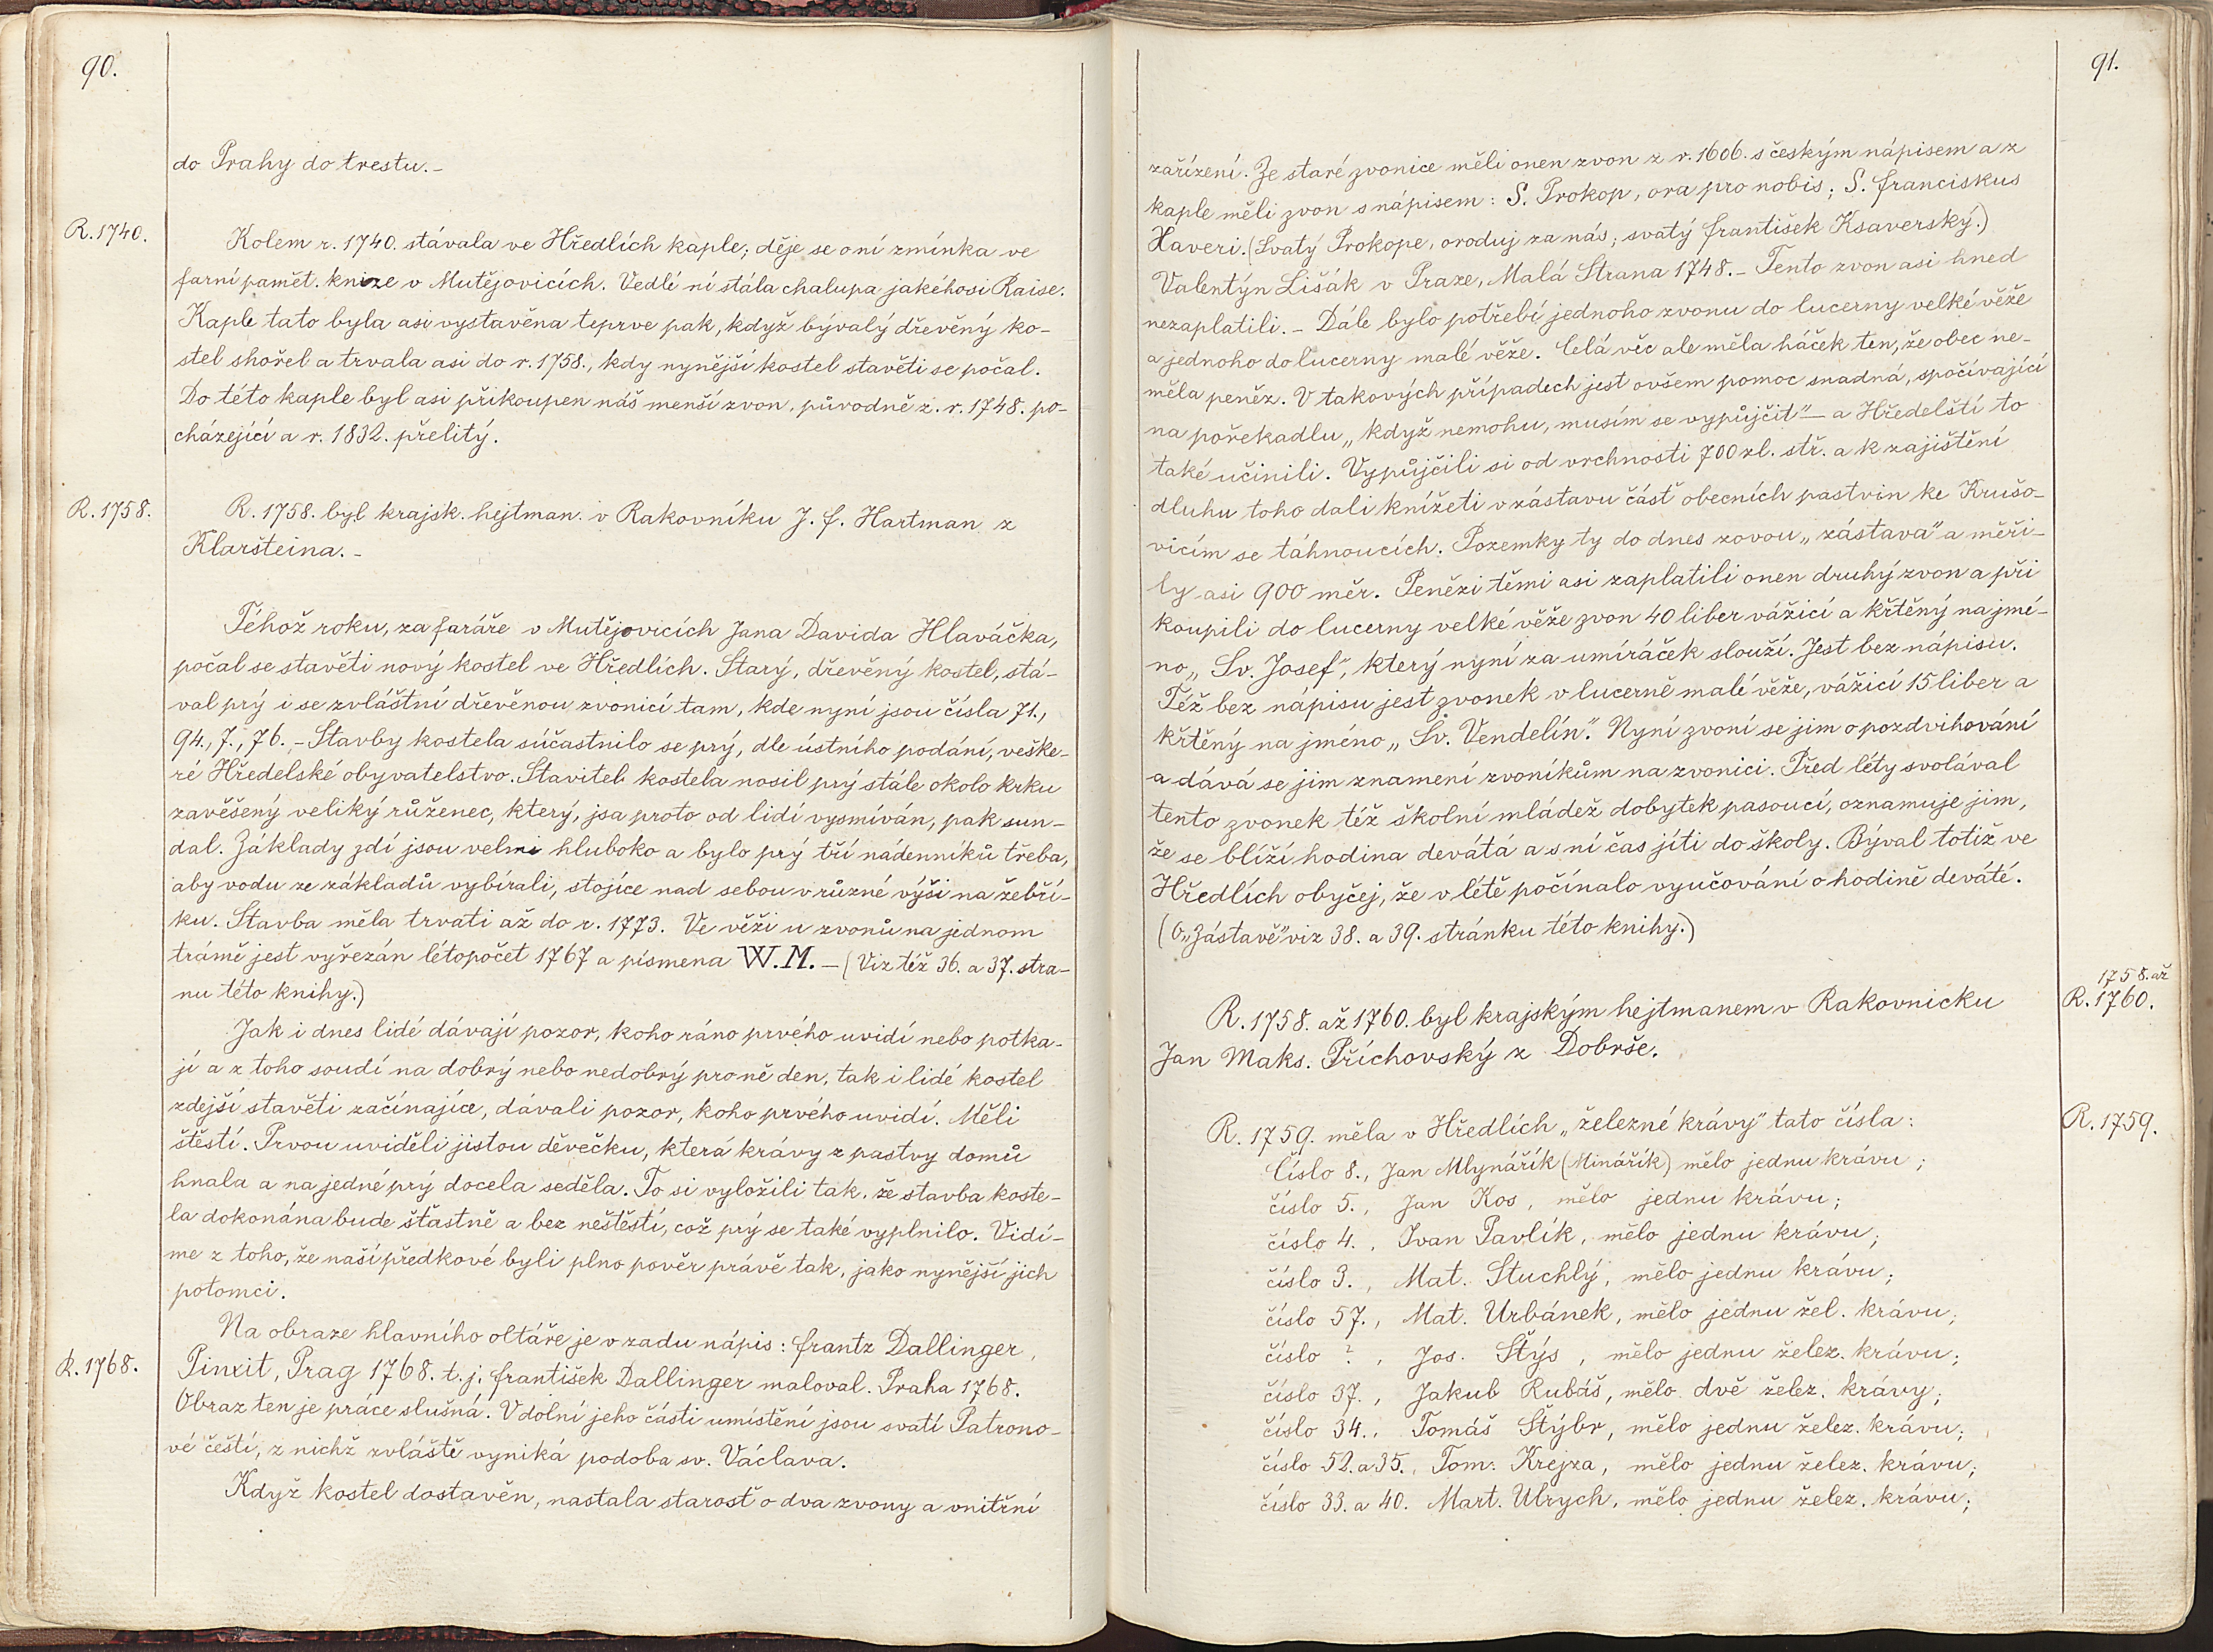 90.
do Prahy do trestu. –
R. 1740.
Kolem r. 1740. stávala ve Hředlích kaple; děje se o ní zmínka ve
farní pamět. knize v Mutějovicích. Vedlé ní stála chalupa jakéhosi Raise.
Kaple tato byla asi vystavěna teprve pak, když bývalý dřevěný ko-
stel shořel a trvala asi do r. 1758., kdy nynější kostel stavěti se počal.
Do této kaple byl asi přikoupen náš menší zvon, původně z. r. 1748. po-
cházející a r. 1832. přelitý.
R. 1758.
R. 1758. byl krajsk. hejtman. v Rakovníku J. f. Hartman z
Klaršteina. –
Téhož roku, za faráře v Mutějovicích Jana Davida Hlaváčka,
počal se stavěti nový kostel ve Hředlích. Starý, dřevěný kostel, stá-
val prý i se zvláštní dřevěnou zvonicí tam, kde nyní jsou čísla 71.,
94., 7., 76. – Stavby kostela súčastnilo se prý, dle ústního podání, veške-
ré Hředelské obyvatelstvo. Stavitel kostela nosil prý stále okolo krku
zavěšený veliký růženec, který, jsa proto od lidí vysmíván, pak sun-
dal. Základy zdí jsou velmi hluboko a bylo prý tří nádenníků třeba,
aby vodu ze základů vybírali, stojíce nad sebou v různé výši na žebří-
ku. Stavba měla trvati až do r. 1773. Ve věži u zvonů na jednom
trámě jest vyřezán letopočet 1767 a písmena W. M. – (Viz též 36. a 37. stra-
nu této knihy.)
Jak i dnes lidé dávají pozor, koho ráno prvého uvidí nebo potka-
jí a z toho soudí na dobrý nebo nedobrý pro ně den, tak i lidé kostel
zdejší stavěti začínajíce, dávali pozor, koho prvého uvidí. Měli
štěstí. Prvou uviděli jistou děvečku, která krávy z pastvy domů
hnala a na jedné prý docela seděla. To si vyložili tak, že stavba koste-
la dokonána bude šťastně a bez neštěstí, což prý se také vyplnilo. Vidí-
me z toho, že naší předkové byli plno pověr právě tak, jako nynější jich
potomci.
Na obraze hlavního oltáře je v zadu nápis: frantz Dallinger,
R. 1768.
Pinxit, Prag 1768. t. j. františek Dallinger maloval. Praha 1768.
Obraz ten je práce slušná. V dolní jeho části umístění jsou svatí Patrono-
vé čeští, z nichž zvláště vyniká podoba sv. Václava.
Když kostel dostavěn, nastala starosť o dva zvony a vnitřní
91.
zařízení. Ze staré zvonice měli onen zvon z r. 1606. s českým nápisem a z
kaple měli zvon s nápisem: S. Prokop, ora pro nobis; S. franciskus
Xaveri. (Svatý Prokope, oroduj za nás; svatý františek Ksaverský.)
Valentýn Lišák v Praze, Malá Strana 1748. – Tento zvon asi hned
nezaplatili. – Dále bylo potřebí jednoho zvonu do lucerny velké věže
a jednoho do lucerny malé věže. Celá věc ale měla háček ten, že obec ne-
měla peněz. V takových případech jest ovšem pomoc snadná, spočívající
na pořekadlu „když nemohu, musím se vypůjčit“ – a Hředelští to
také učinili. Vypůjčili si od vrchnosti 700 zl. stř. a k zajištění
dluhu toho dali knížeti v zástavu část obecních pastvin ke Krušo-
vicím se táhnoucích. Pozemky ty do dnes zovou „zástava“ a měři-
ly asi 900 měr. Penězi těmi asi zaplatili onen druhý zvon a při
koupili do lucerny velké věže zvon 40 liber vážící a křtěný na jmé-
no „Sv. Josef“, který nyní za umíráček slouží. Jest bez nápisu.
Též bez nápisu jest zvonek v lucerně malé věže, vážící 15 liber a
křtěný na jméno „Sv. Vendelín“. Nyní zvoní se jim o pozdvihování
a dává se jim znamení zvoníkům na zvonici. Před léty svolával
tento zvonek též školní mládež dobytek pasoucí, oznamuje jim,
že se blíží hodina devátá a s ní čas jíti do školy. Býval totiž ve
Hředlích obyčej, že v létě počínalo vyučování o hodině deváté.
(O „Zástavě“ viz 38. a 39. stránku této knihy.)
1758. až
R. 1760.
R. 1758. až 1760. byl krajským hejtmanem v Rakovnicku
Jan Maks. Příchovský z Dobrše.
R. 1759.
R. 1759. měla v Hředlích „železné krávy“ tato čísla:
Číslo 8., Jan Mlynářík (Minářík) mělo jednu krávu;
číslo 5., Jan Kos, mělo jednu krávu;
číslo 4., Ivan Pavlík, mělo jednu krávu;
číslo 3., Mat. Stuchlý, mělo jednu krávu;
číslo 57., Mat. Urbánek, mělo jednu žel. krávu;
číslo ?, Jos. Štýs, mělo jednu želez. krávu;
číslo 37., Jakub Rubáš, mělo dvě želez. krávy;
číslo 34., Tomáš Štýbr, mělo jednu želez. krávu;
číslo 52. a 35., Tom. Krejza, mělo jednu želez. krávu;
číslo 33. a 40. Mart. Ulrych, mělo jednu želez. krávu;